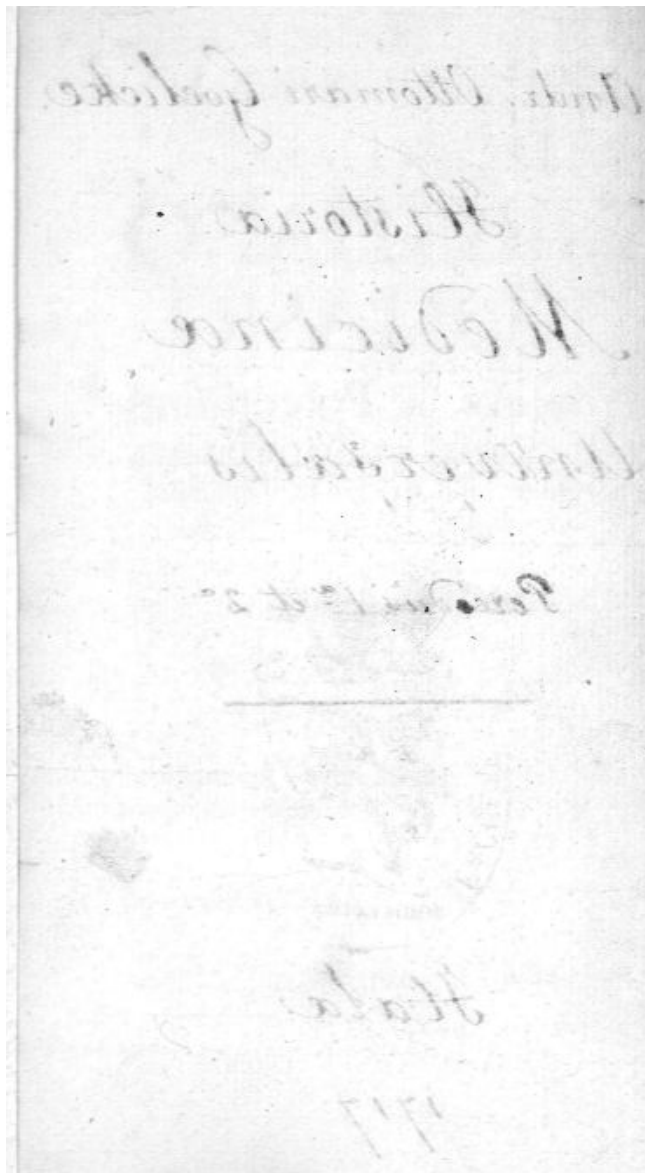 Andr. Ottomari Goelicke
Historia
Medicinæ
Universalis
Periodus 1ª et 2ª
Hala
1717